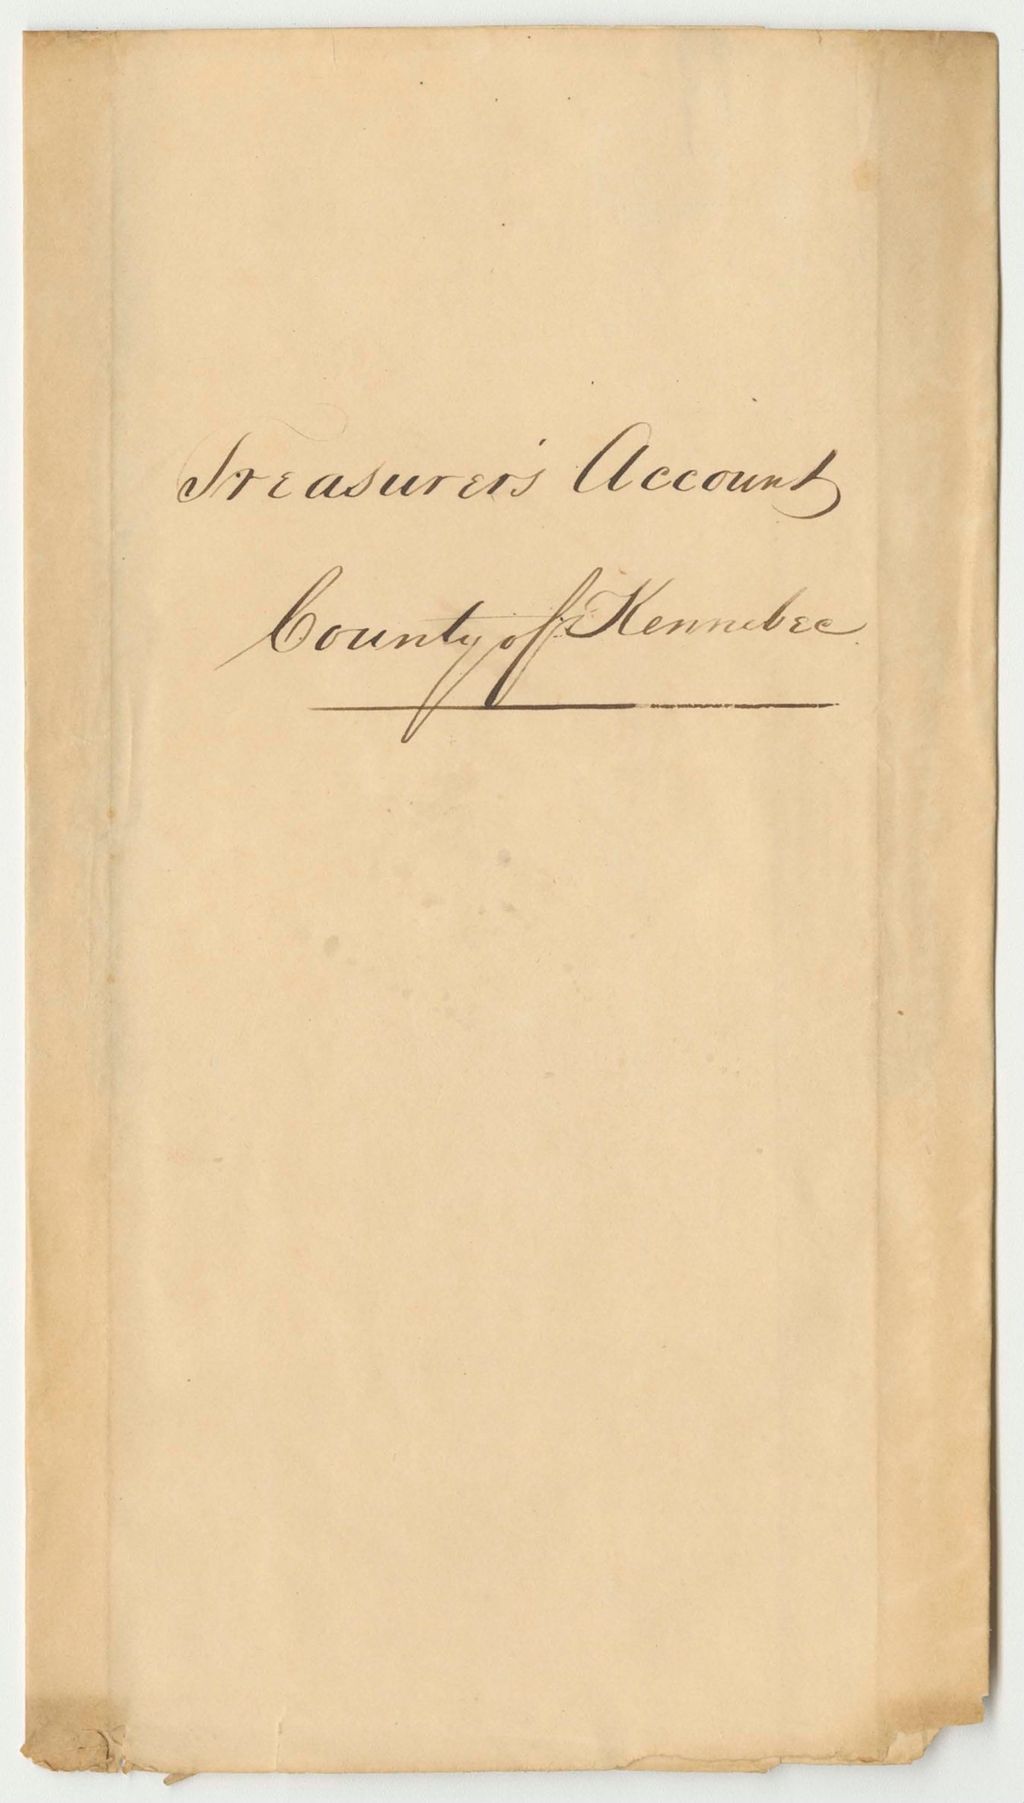 Treasurer's Account
County of Kennebec